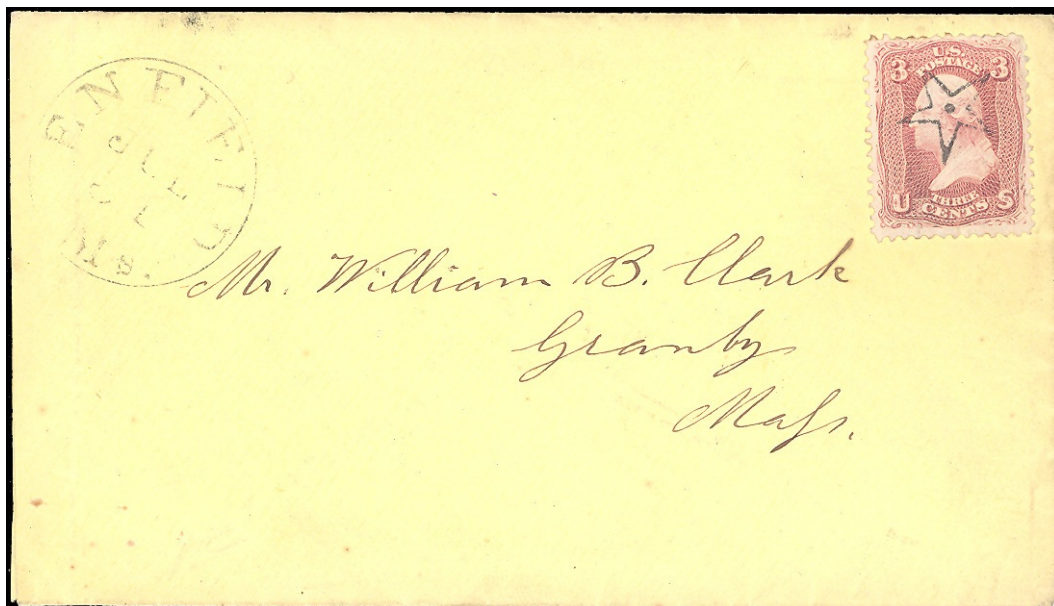 ENFIELD
JUL
Ms
3 U.S. 3
POSTAGE
THREE
U CENTS S
Mr. William B. Clark
Granby
Maſs.